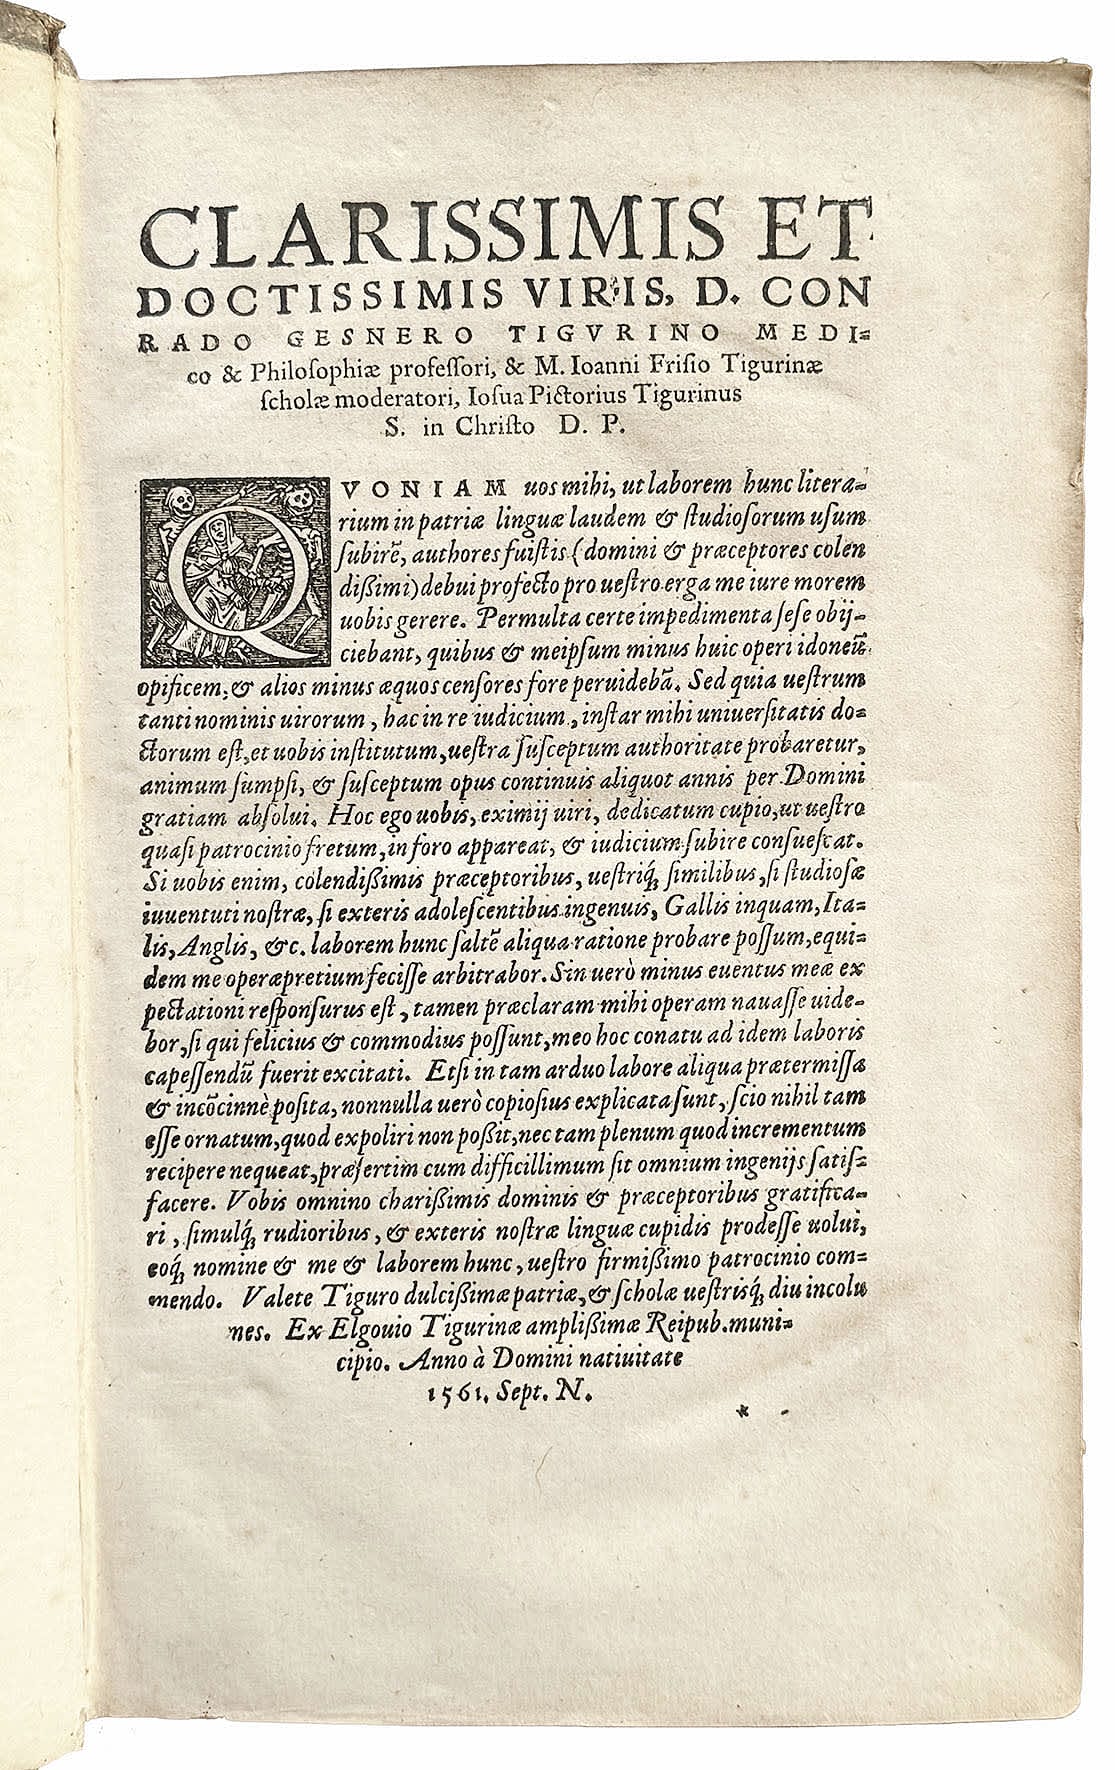 CLARISSIMIS ET
DOCTISSIMIS VIRIS, D. CON
RADO GESNERO TIGVRINO MEDI=
co & Philosophiæ professori, & M. Ioanni Frisio Tigurinæ
scholæ moderatori, Iosua Pictorius Tigurinus
S. in Christo D. P.
QVONIAM uos mihi, ut laborem hunc litera=
rium in patriæ linguæ laudem & studiosorum usum
subirē, authores fuistis (domini & præceptores colen
dißimi) debui profecto pro uestro erga me iure morem
uobis gerere. Permulta certe impedimenta sese obij=
ciebant, quibus & meipsum minus huic operi idoneū
opificem, & alios minus æquos censores fore peruidebā. Sed quia uestrum
tanti nominis uirorum, hac in re iudicium, instar mihi uniuersitatis do=
ctorum est, et uobis institutum, uestra susceptum authoritate probaretur,
animum sumpsi, & susceptum opus continuis aliquot annis per Domini
gratiam absolui. Hoc ego uobis, eximij uiri, dedicatum cupio, ut uestro
quasi patrocinio fretum, in foro appareat, & iudicium subire consuescat.
Si uobis enim, colendißimis præceptoribus, uestriq́; similibus, si studiosæ
iuuentuti nostræ, si exteris adolescentibus ingenuis, Gallis inquam, Ita=
lis, Anglis, &c. laborem hunc saltē aliqua ratione probare possum, equi=
dem me operæpretium fecisse arbitrabor. Sin uerò minus euentus meæ ex
pectationi responsurus est, tamen præclaram mihi operam nauasse uide=
bor, si qui felicius & commodius possunt, meo hoc conatu ad idem laboris
capessendū fuerit excitati. Etsi in tam arduo labore aliqua prætermissa
& incōcinnè posita, nonnulla uerò copiosius explicata sunt, scio nihil tam
esse ornatum, quod expoliri non poßit, nec tam plenum quod incrementum
recipere nequeat, præsertim cum difficillimum sit omnium ingenijs satis=
facere. Vobis omnino charißimis dominis & præceptoribus gratifica=
ri, simulq́; rudioribus, & exteris nostræ linguæ cupidis prodesse uolui,
eoq́; nomine & me & laborem hunc, uestro firmißimo patrocinio com=
mendo. Valete Tiguro dulcißimæ patriæ, & scholæ uestrisq́; diu incolu
mes. Ex Elgouio Tigurinæ amplißimæ Reipub. muni=
cipio. Anno à Domini natiuitate
1561. Sept. N.
*